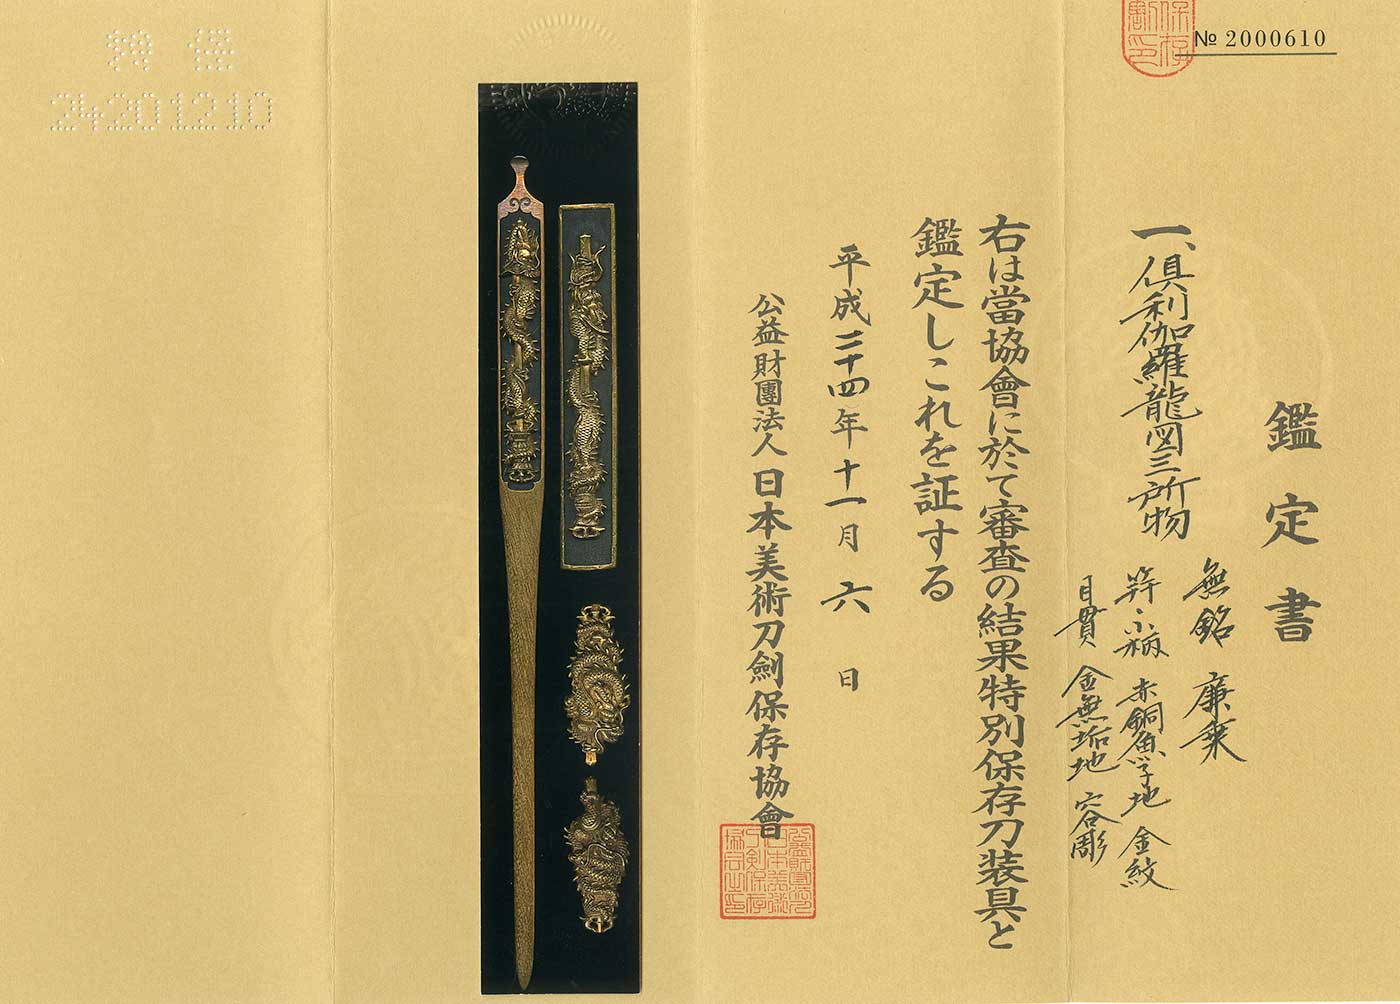 № 2000610
鑑定書
一、倶利伽羅龍図三所物
無銘 廉乗
笄・小柄 赤銅魚子地 金紋
目貫 金無垢地 容彫
右は當協會に於て審査の結果特別保存刀装具と
鑑定しこれを証する
平成二十四年十一月六日
公益財團法人 日本美術刀劍保存協會
特保
24201210